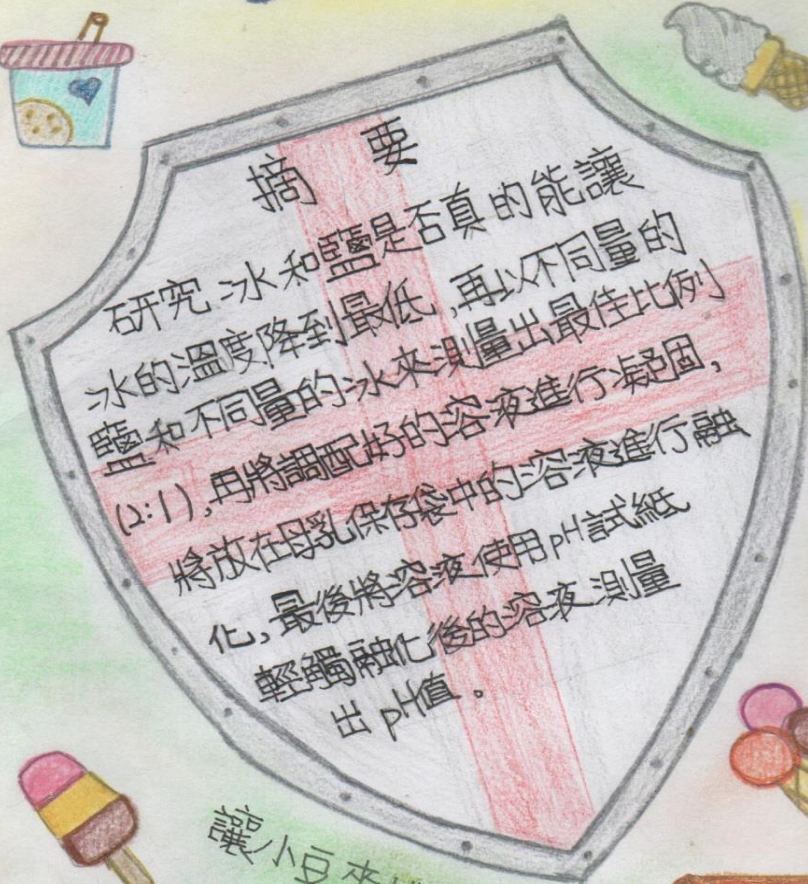 摘要
研究冰和鹽是否真的能讓
冰的溫度降到最低,再以不同量的
鹽和不同量的冰來測量出最佳比例
(2:1),再將調配好的溶液進行凝固,
將放在母乳保存袋中的溶液進行融
化,最後將溶液使用pH試紙
輕觸融化後的溶液測量
出pH值。
讓小豆來